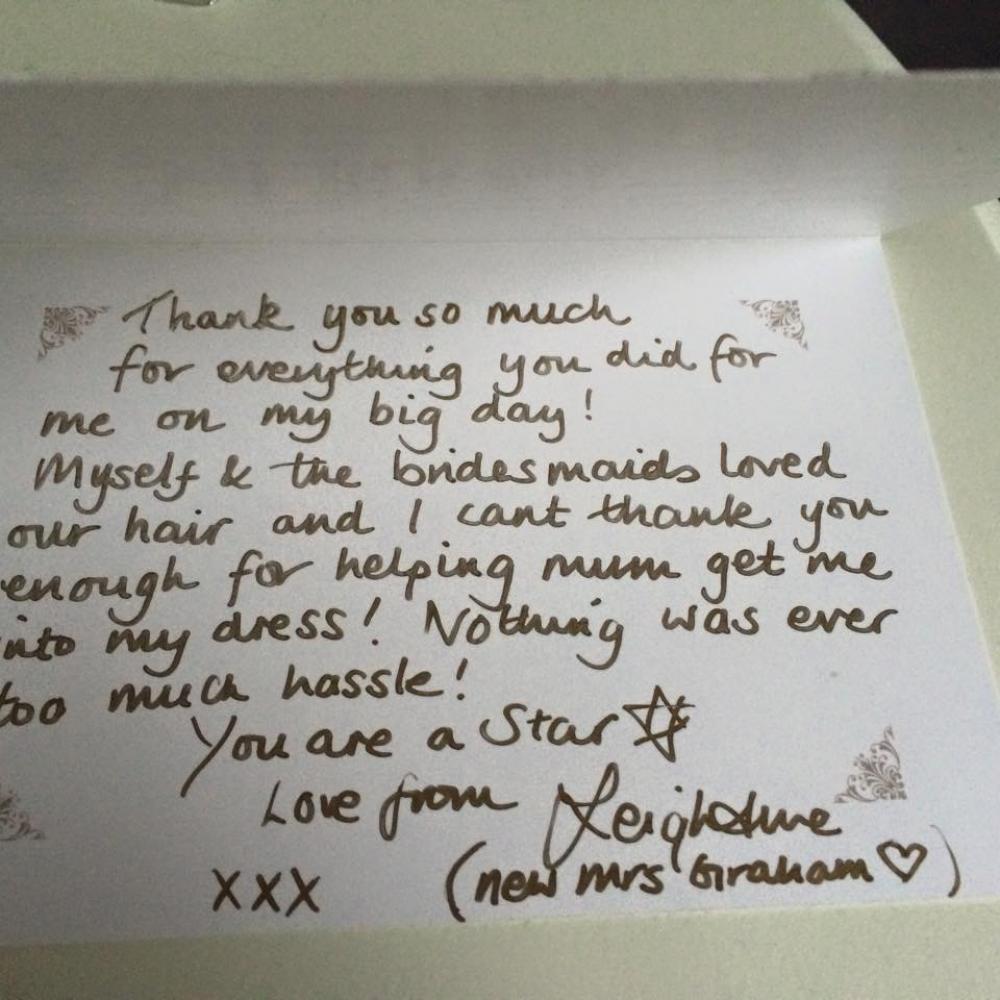 Thank you so much
for everything you did for
me on my big day!
Myself & the bridesmaids loved
our hair and I cant thank you
enough for helping mum get me
into my dress! Nothing was ever
too much hassle!
You are a Star ☆
Love from
xxx (new mrs Graham ♡)